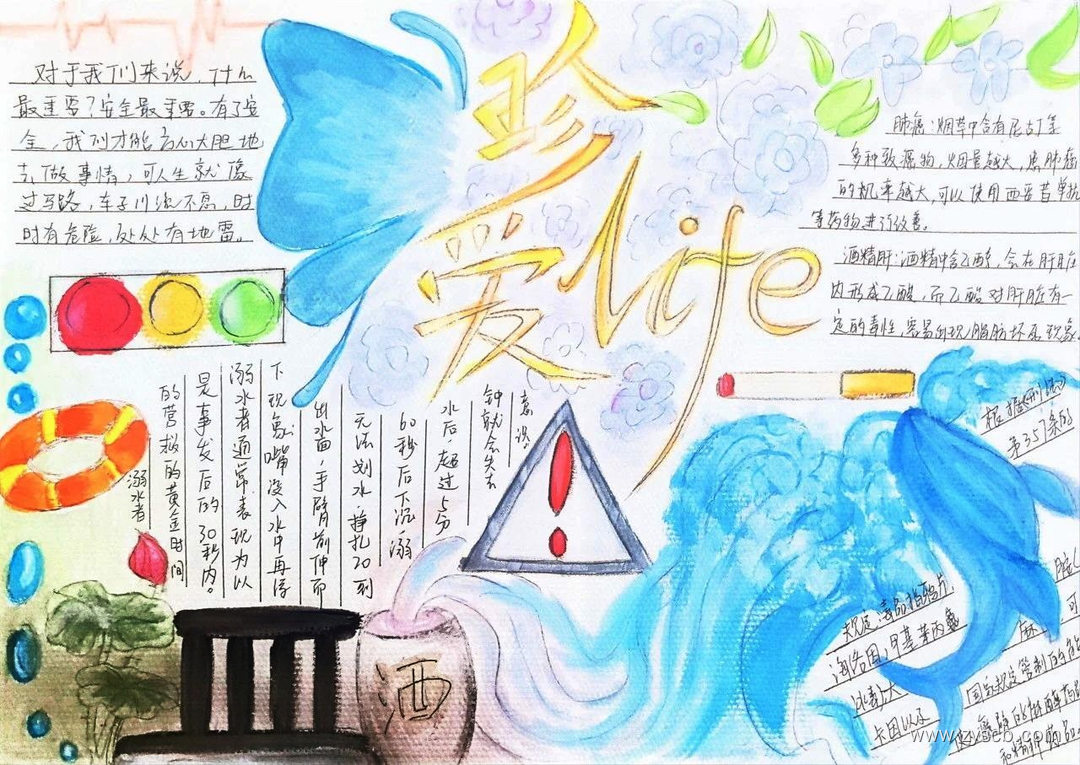 珍
爱
life
对于我们来说，什么
最重要？安全最重要。有了安
全，我们才能放心大胆地
去做事情，可人生就像
过马路，车子川流不息，时
时有危险，处处有地雷。
肺癌：烟草中含有尼古丁等
多种致癌物，烟量越大，患肺癌
的机率越大，可以使用西妥昔单抗
等药物进行改善。
酒精肝：酒精中含乙醇，会在肝脏
内形成乙酸，而乙酸对肝脏有一
定的毒性，容易出现脂肪坏死现象。
溺水者
的营救的黄金时间
是事发后的30秒内。
溺水者通常表现为以
下现象嘴没入水中再浮
出水面，手臂前伸而
无法划水，挣扎20到
60秒后下沉，溺
水后，超过5分
钟就会失去
意识。
酒
根据《刑法》
第357条的
规定：毒品指鸦片，
海洛因，甲基苯丙胺
(冰毒)，大
麻，可
卡因以及
国家规定管制的的能